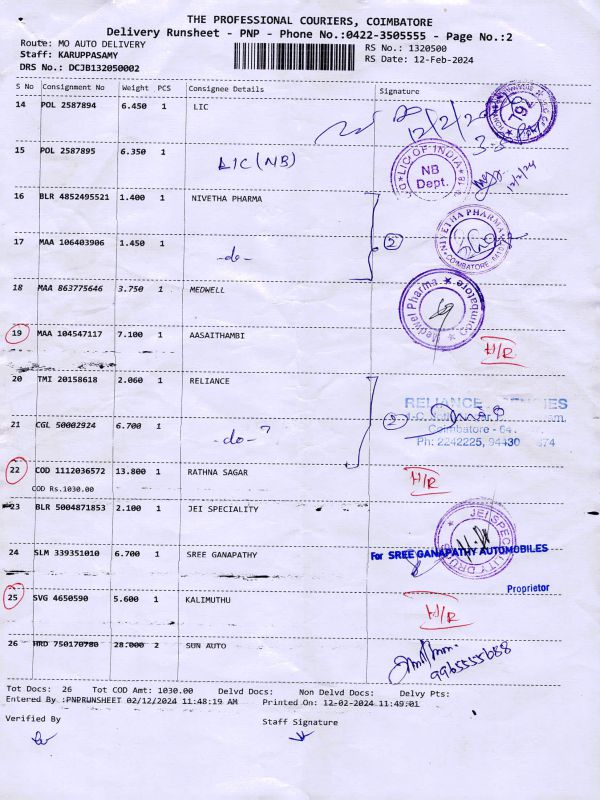 THE PROFESSIONAL COURIERS, COIMBATORE
Delivery Runsheet - PNP - Phone No.:0422-3505555 - Page No.:2
Route: MO AUTO DELIVERY
RS No.: 1320500
Staff: KARUPPASAMY
RS Date: 12-Feb-2024
DRS No.: DCJB132050002
S No Consignment No Weight PCS Consignee Details Signature
14 POL 2587894 6.450 1 LIC
12/2/20
15 POL 2587895 6.350 1 LIC (NB)
LIC OF INDIA
NB
Dept.
12/2/24
16 BLR 4852495521 1.400 1 NIVETHA PHARMA
NIVETHA PHARMA
COIMBATORE
17 MAA 106403906 1.450 1 -do-
2
18 MAA 863775646 3.750 1 MEDWELL
Medwell Pharma
Coimbatore
19 MAA 104547117 7.100 1 AASAITHAMBI
H/R
20 TMI 20158618 2.060 1 RELIANCE
RELIANCE
21 CGL 50002924 6.700 1 -do-?
2
Coimbatore - 64
Ph: 2242225, 94430 874
22 COD 1112036572 13.800 1 RATHNA SAGAR
H/R
COD Rs.1030.00
23 BLR 5004871853 2.100 1 JEI SPECIALITY
JEI SPECIALITY DRUGS
24 SLM 339351010 6.700 1 SREE GANAPATHY
For SREE GANAPATHY AUTOMOBILES
Proprietor
25 SVG 4650590 5.600 1 KALIMUTHU
H/R
26 HRD 750170780 28.000 2 SUN AUTO
9965555688
Tot Docs: 26 Tot COD Amt: 1030.00 Delvd Docs: Non Delvd Docs: Delvy Pts:
Entered By :PNPRUNSHEET 02/12/2024 11:48:19 AM Printed On: 12-02-2024 11:49:01
Verified By Staff Signature